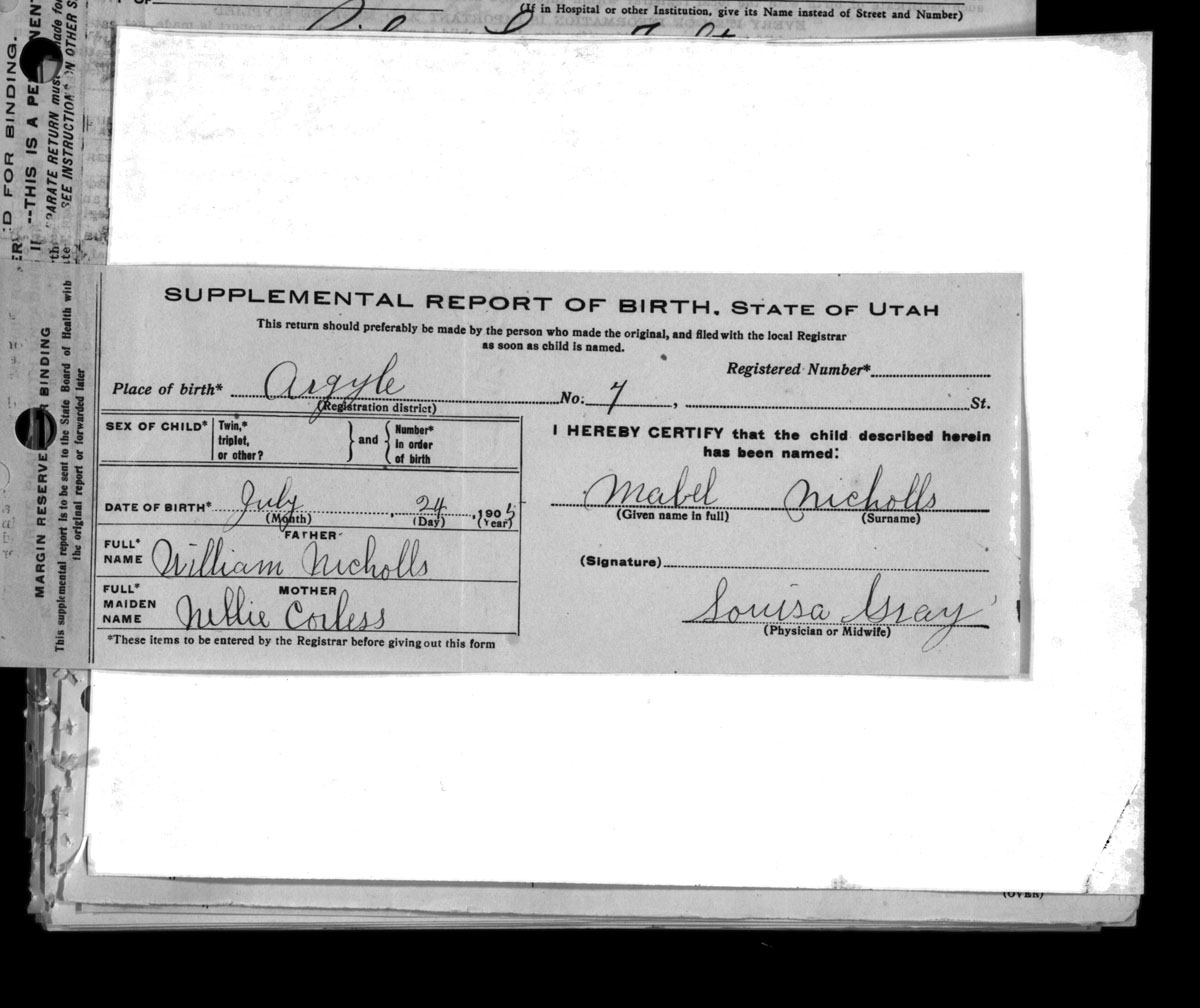 (If in Hospital or other Institution, give its Name instead of Street and Number)
D FOR BINDING.
--THIS IS A
PARATE RETURN must
SEE INSTRUCTIONS ON OTHER
MARGIN RESERVE BINDING
This supplemental report is to be sent to the State Board of Health with
the original report or forwarded later
SUPPLEMENTAL REPORT OF BIRTH, STATE OF UTAH
This return should preferably be made by the person who made the original, and filed with the local Registrar
as soon as child is named.
Registered Number*
Place of birth* Argyle No. 7, St.
(Registration district)
SEX OF CHILD* Twin,* triplet, or other? and Number* in order of birth
DATE OF BIRTH* July, 24, 1905
(Month) (Day) (Year)
FATHER
FULL* NAME William Nicholls
MOTHER
FULL* MAIDEN NAME Nellie Corless
*These items to be entered by the Registrar before giving out this form
I HEREBY CERTIFY that the child described herein
has been named:
Mabel Nicholls
(Given name in full) (Surname)
(Signature)
Louisa Gray
(Physician or Midwife)
(OVER)